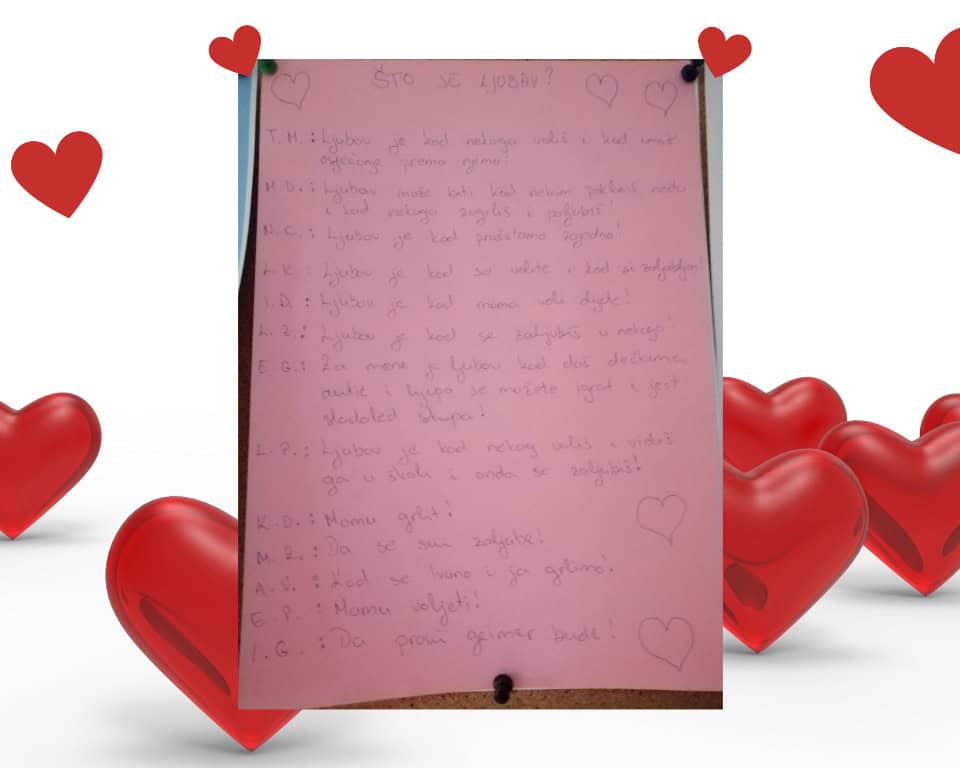 ŠTO JE LJUBAV?
T. M. : Ljubav je kad nekoga voliš i kad imaš
osjećanje prema njemu!
M. D. : Ljubav može biti kad nekom pokloniš nešto
i kad nekoga zagrliš i poljubiš!
N. C. : Ljubav je kad praštamo zajedno!
L. K. : Ljubav je kad se volite i kad si zaljubljen!
I. D. : Ljubav je kad mama voli dijete!
L. Z. : Ljubav je kad se zaljubiš u nekoga!
E. G. : Za mene je ljubav kad daš dečkima
autić i lijepo se možete igrat i jest
sladoled skupa!
L. P. : Ljubav je kad nekog voliš i vidiš
ga u školi i onda se zaljubiš!
K. D. : Mamu grlit!
M. Z. : Da se svi zaljube!
A. V. : Kad se Ivano i ja grlimo!
E. P. : Mamu voljeti!
I. G. : Da pravi gejmer bude!